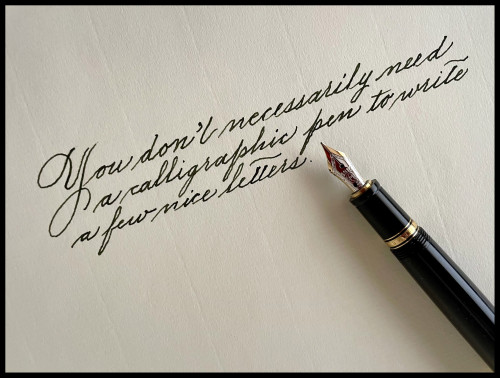 You don't necessarily need
a calligraphic pen to write
a few nice letters.